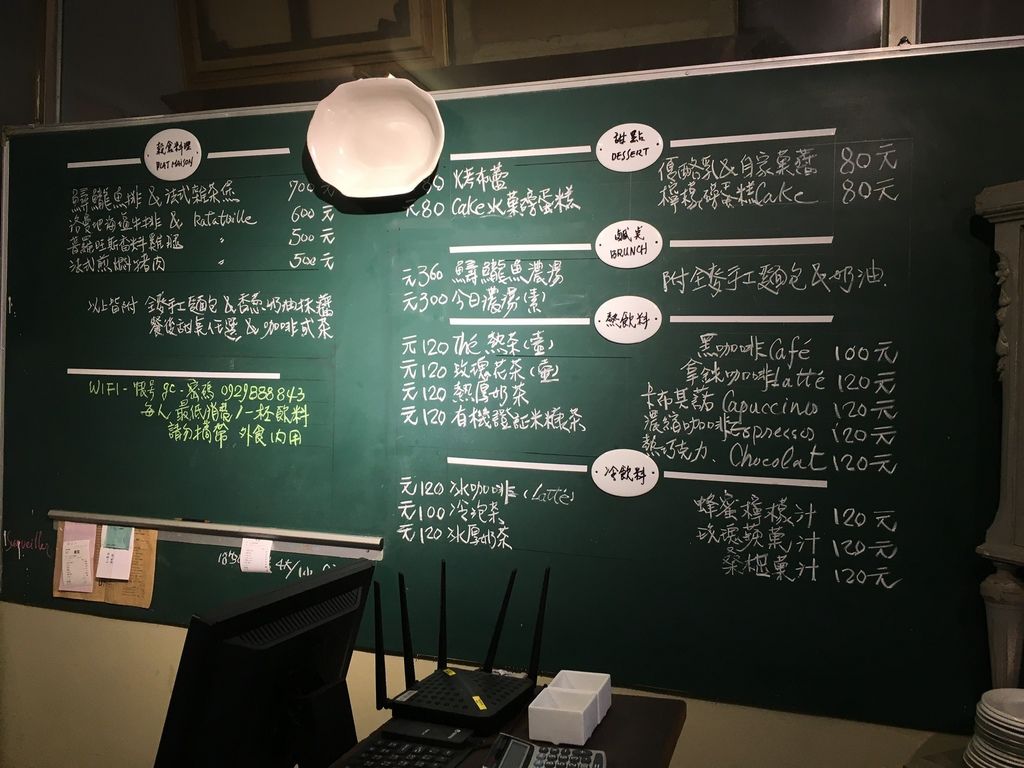 PLAT MAISON
鱘龍魚排 & 法式雜菜魚 700元
洛費 牛排 & Ratatouille 600元
香料雞腿 〃 500元
法式煎 豬肉 500元
以上皆附 全麥手工麵包 & 香蔥奶油抹醬
餐後甜點任選 & 咖啡或茶
WIFI - 帳号 gc. 密碼 0929888843
每人最低消費/一杯飲料
請勿攜帶 外食內用
甜點
DESSERT
烤布蕾
元80 Cake 水果磅蛋糕
優酪乳 & 自家果醬 80元
檸檬磅蛋糕Cake 80元
鹹食
BRUNCH
元360 鱘龍魚濃湯
元300 今日濃湯(素)
附全麥手工麵包 & 奶油.
熱飲料
元120 Thé 熱茶(壺)
元120 玫瑰花茶(壺)
元120 熱厚奶茶
元120 有機證証米糠茶
黑咖啡Café 100元
拿鉄咖啡Latté 120元
卡布其諾 Capuccino 120元
濃縮咖啡Espresso 120元
熱巧克力. Chocolat 120元
冷飲料
元120 冰咖啡 (Latté)
元100 冷泡茶
元120 冰厚奶茶
蜂蜜檸檬汁 120元
玫瑰蘋果汁 120元
桑椹果汁 120元